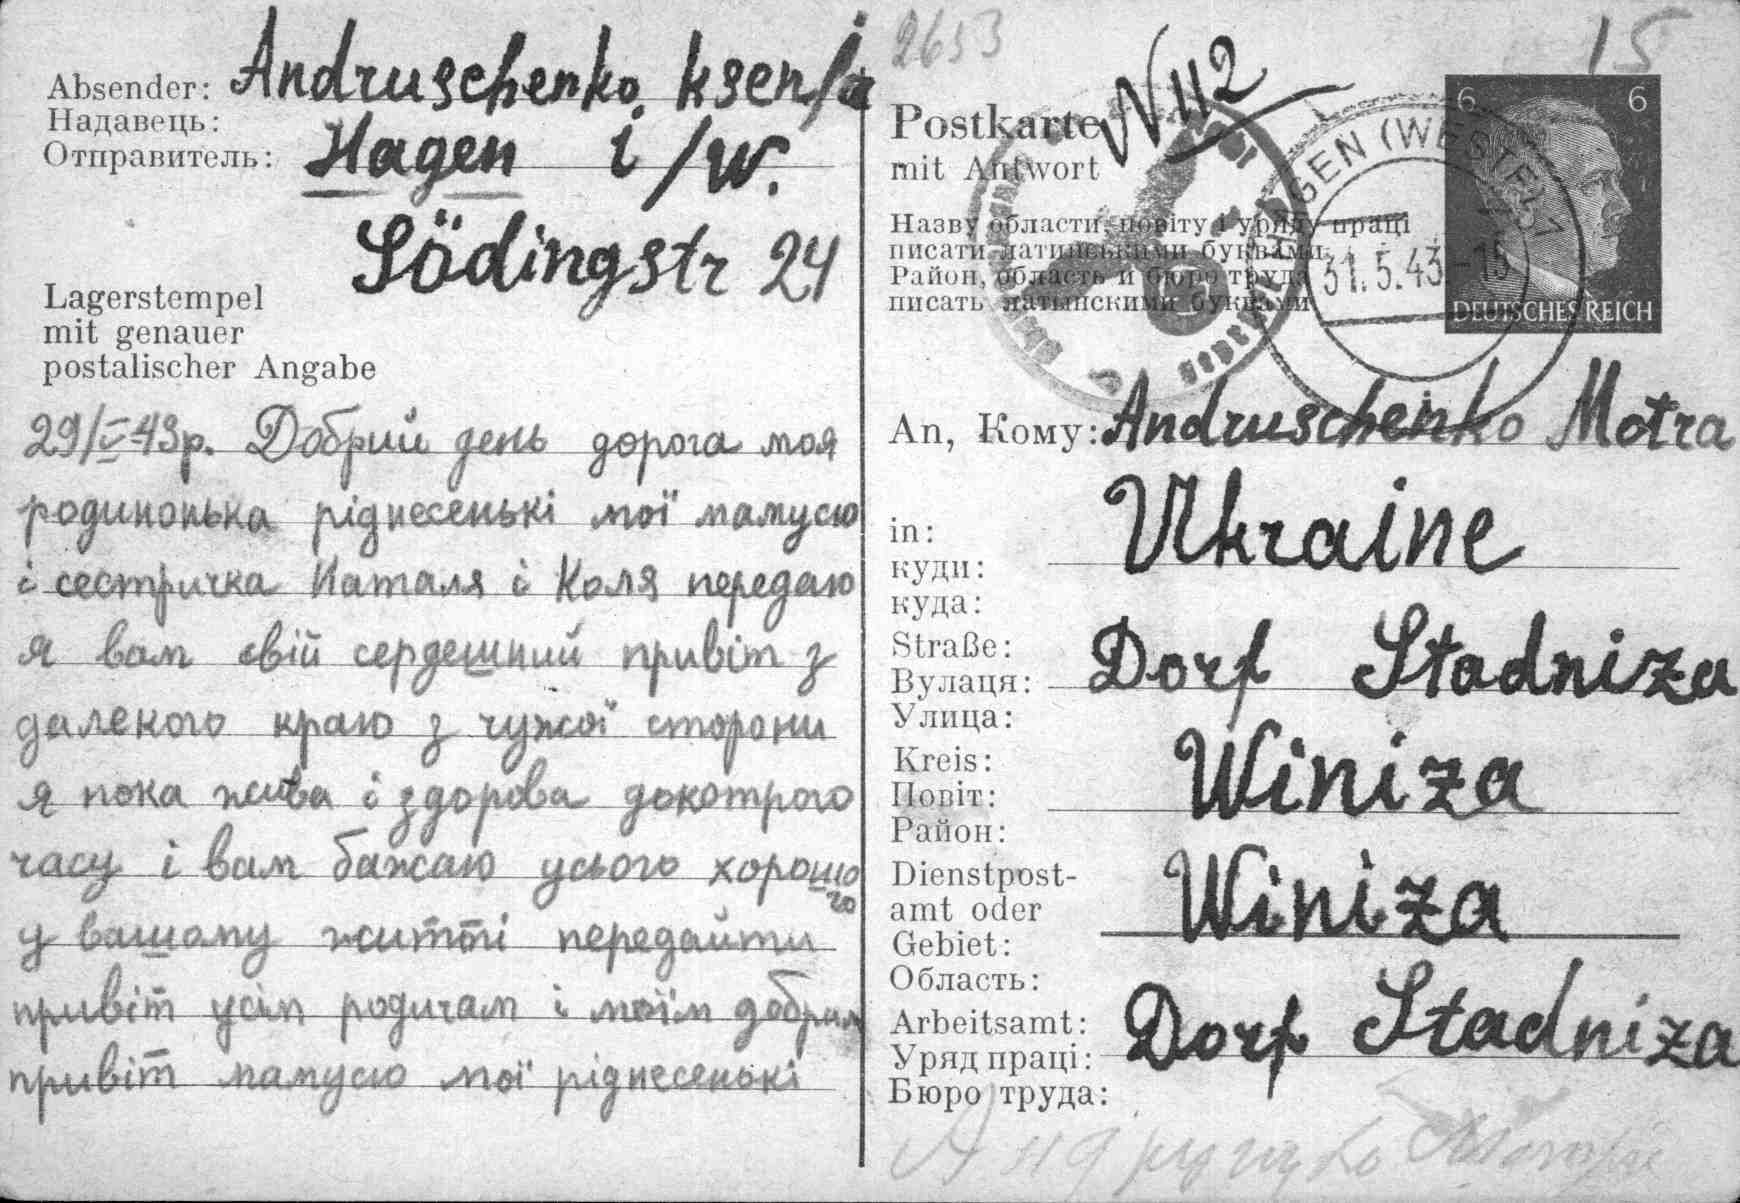 Absender: Andruschenko, Ksenja
Надавець:
Отправитель: Hagen i/W.
Södingstr 24
Lagerstempel
mit genauer
postalischer Angabe
29/V-43р. Добрий день дорога моя
родинонька ріднесенькі мої мамусю
і сестричка Наталя і Коля передаю
я вам свій сердешний привіт з
далекого краю з чужої сторони
я пока жива і здорова докотрого
часу і вам бажаю усього хорошо
го
у вашому житті передайти
привіт усім родичам і моїм добрим
привіт мамусю мої ріднесенькі
2653
15
Postkarte N 112
mit Antwort
Назву области, повіту і уряду праці
писати латинськими буквами
Район, область и бюро труда
писать латынскими буквами
HAGEN (WESTF) 1
31.5.43.-15
6 6
DEUTSCHES REICH
An, Кому: Andruschenko Motra
in: Ukraine
куди:
куда:
Straße: Dorf Stadniza
Вулаця:
Улица:
Kreis: Winiza
Повіт:
Район:
Dienstpost-
amt oder Winiza
Gebiet:
Область:
Arbeitsamt: Dorf Stadniza
Уряд праці:
Бюро труда: